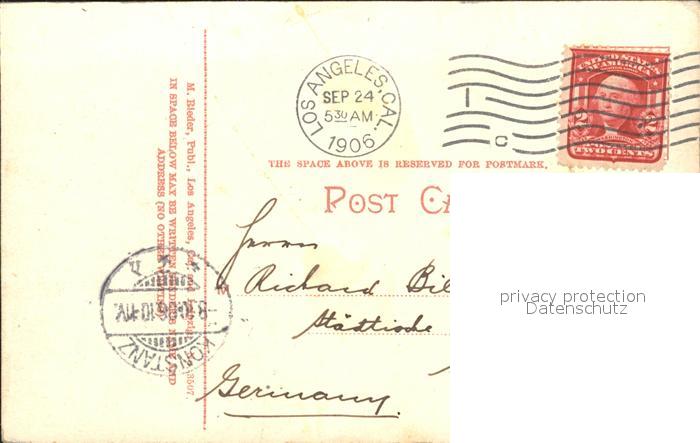 LOS ANGELES, CAL.
SEP 24
5 30 AM.
1906
1
C
UNITED STATES
OF AMERICA
2 2
TWO CENTS
THE SPACE ABOVE IS RESERVED FOR POSTMARK.
POST CA
M. Rieder, Publ., Los Angeles,
3507.
IN SPACE BELOW MAY BE WRITTEN
ADDRESS (NO OTHER
KONSTANZ
Herrn
Richard Bil
Städtische
Germany.
privacy protection
Datenschutz